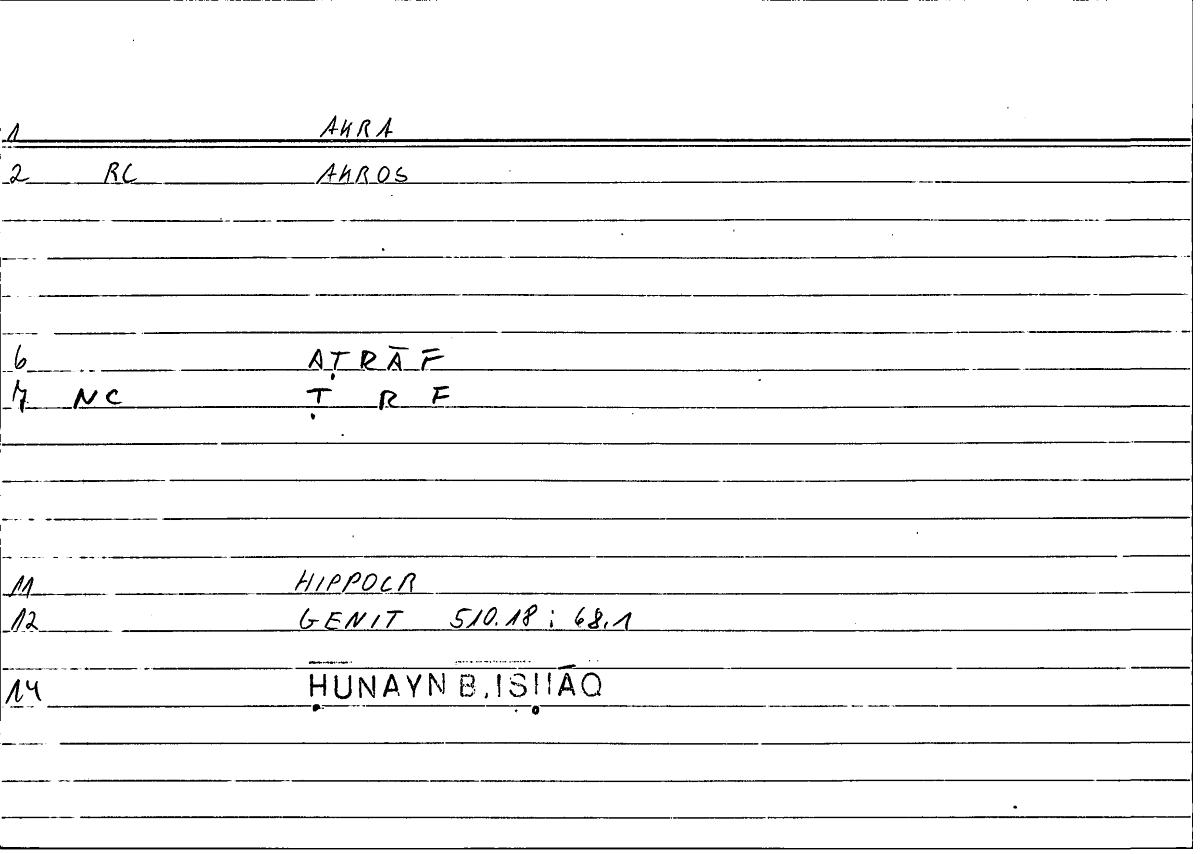 1 AKRA
2 RC AKROS
6 AṬRĀF
7 NC Ṭ R F
11 HIPPOCR
12 GENIT 510.18; 68,1
14 ḤUNAYN B. ISḤĀQ